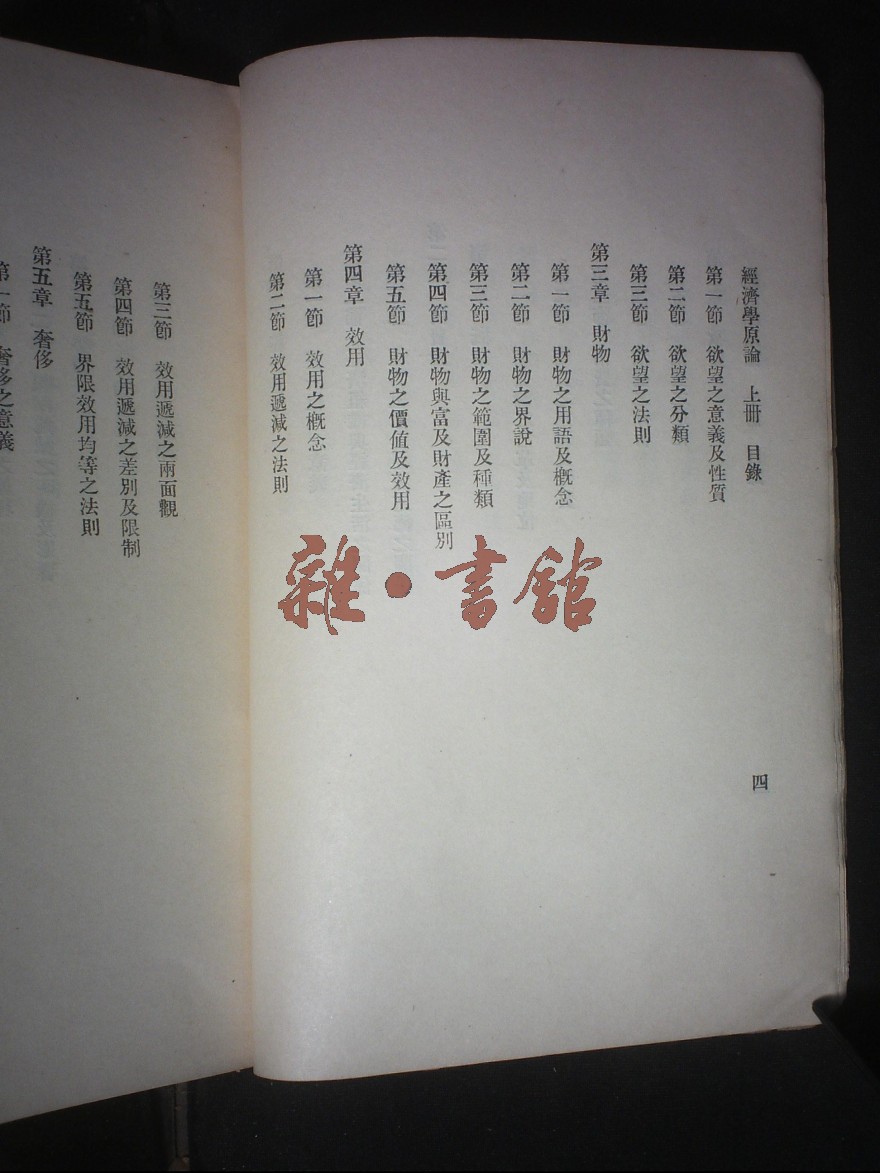 經濟學原論 上册 目錄
第一節 欲望之意義及性質
第二節 欲望之分類
第三節 欲望之法則
第三章 財物
第一節 財物之用語及槪念
第二節 財物之界說
第三節 財物之範圍及種類
第四節 財物與富及財產之區別
第五節 財物之價値及效用
第四章 效用
第一節 效用之槪念
第二節 效用遞減之法則
四
第三節 效用遞減之兩面觀
第四節 效用遞減之差別及限制
第五節 界限效用均等之法則
第五章 奢侈
第一節 奢侈之意義
雜·書館